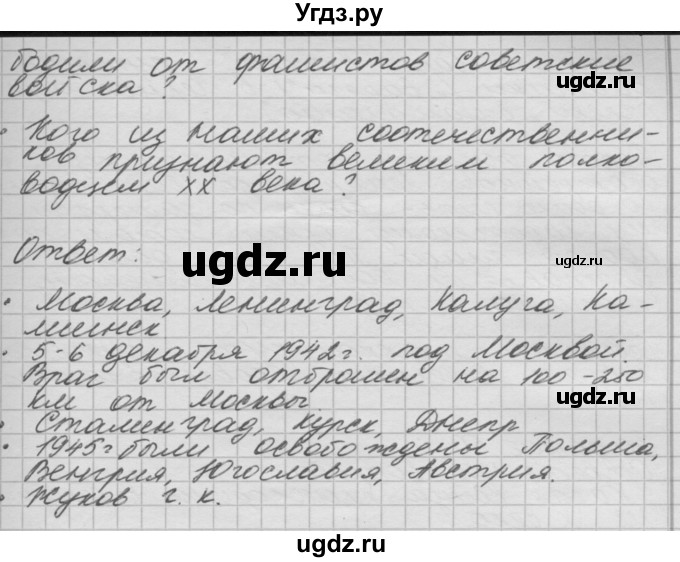 Угдз.ру
бодили от фашистов советские
войска?
• Кого из наших соотечественни-
ков признают великим полко-
водцем XX века?
Ответ:
• Москва, Ленинград, Калуга, Ка-
мминск
• 5-6 декабря 1942г. под Москвой.
Враг был отброшен на 100-250
км от Москвы
• Сталинград, Курск, Днепр
• 1945г были освобождены Польша,
Венгрия, Югославия, Австрия.
• Жуков г. к.
ugdz.ru
ugdz.ru
ugdz.ru
ugdz.ru
ugdz.ru
ugdz.ru